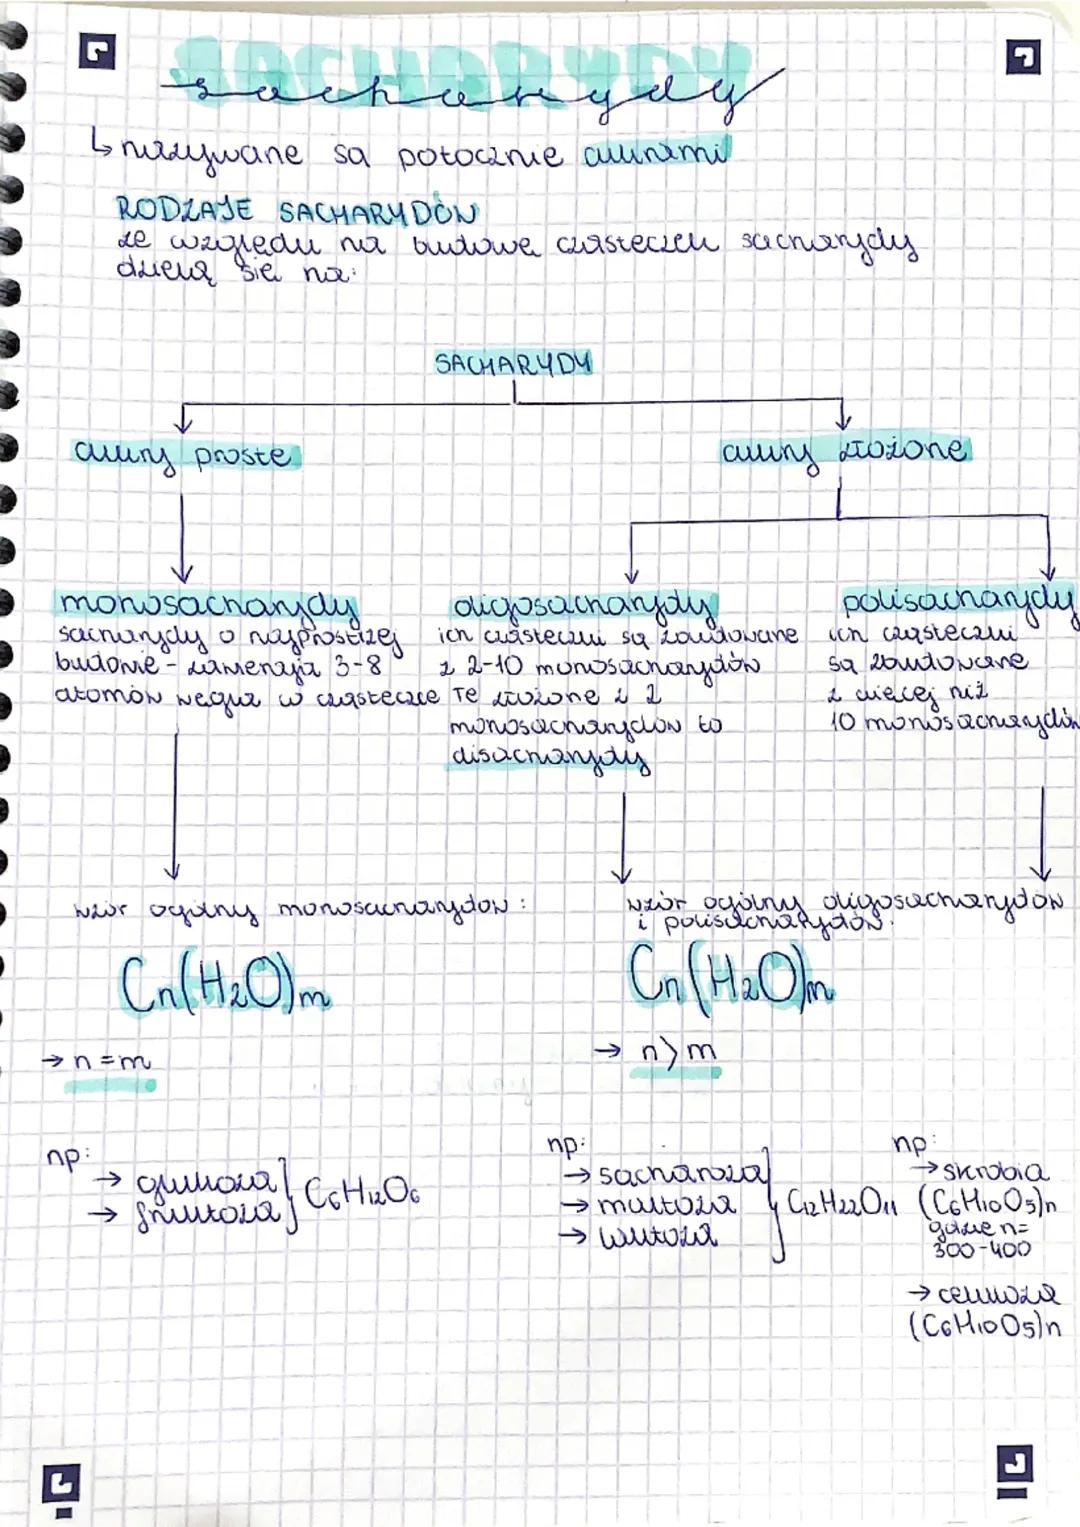 SACHARYDY
sacharydy
↳ nazywane są potocznie cukrami
RODZAJE SACHARYDÓW
ze względu na budowę cząsteczek sacharydy
dzielą się na:
SACHARYDY
cukry proste
cukry złożone
monosacharydy
sacharydy o najprostszej
budowie - zawierają 3-8
atomów węgla w cząsteczce
oligosacharydy
ich cząsteczki są zbudowane
z 2-10 monosacharydów
Te złożone z 2
monosacharydów to
disacharydy
polisacharydy
ich cząsteczki
są zbudowane
z więcej niż
10 monosacharydów
wzór ogólny monosacharydów:
Cn(H2O)m
→ n=m
wzór ogólny oligosacharydów
i polisacharydów:
Cn(H2O)m
→ n>m
np:
→ glukoza
→ fruktoza
C6H12O6
np:
→ sacharoza
→ maltoza
→ laktoza
C12H22O11
np:
→ skrobia
(C6H10O5)n
gdzie n=
300-400
→ celuloza
(C6H10O5)n